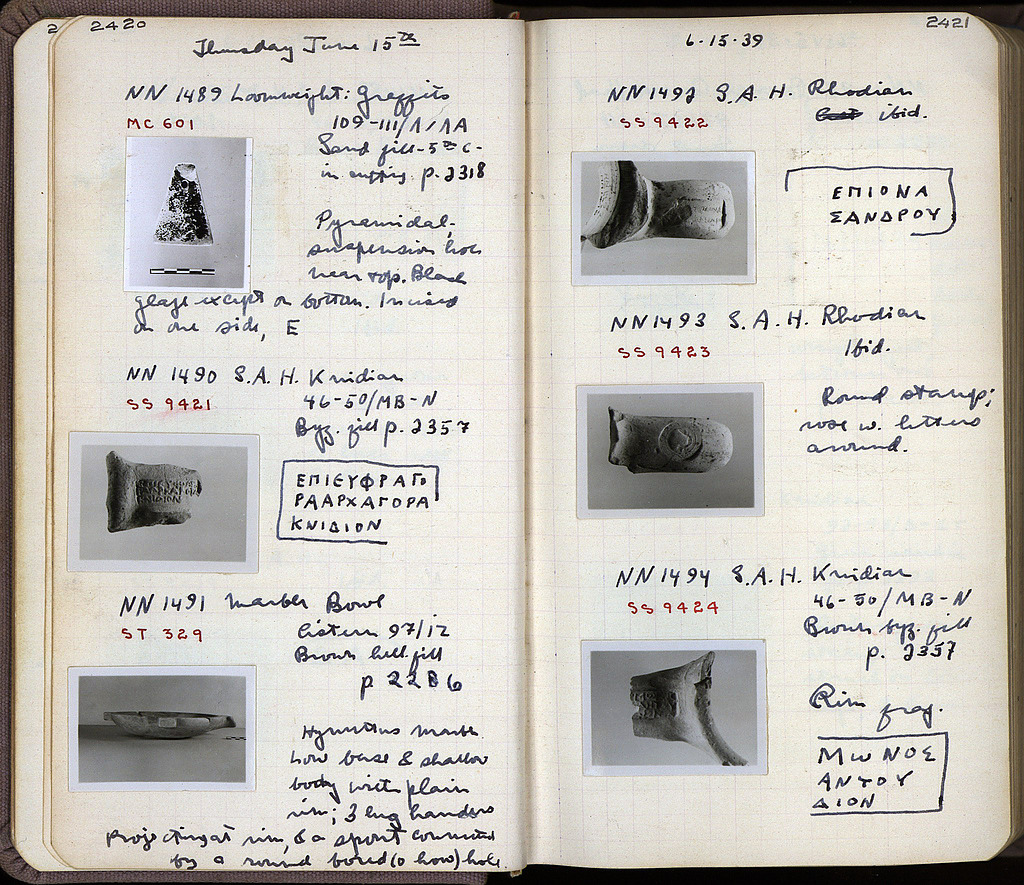 2420
Thursday June 15th
NN 1489 Loomweight: Graffito
MC 601
109-III/1/1A
Sand fill - 5th c -
in cutting p. 2318
Pyramidal.
suspension hole
near top. Black
glaze except on bottom. Incised
on one side, E
NN 1490 S.A.H. Knidian
SS 9421
46-50/MB-N
Byz. fill p. 2357
ΕΠΙΕΥΦΡΑΓΟ
ΡΑΑΡΧΑΓΟΡΑ
ΚΝΙΔΙΟΝ
NN 1491 Marble Bowl
ST 329
Cistern 97/12
Brown hell. fill
p 2286
Hymettus marble.
Low base & shallow
body with plain
rim; 3 lug handles
projecting at rim, & a spout connected
by a round bored (o how) hole.
2421
6-15-39
NN 1492 S.A.H. Rhodian
SS 9422
ibid.
ΕΠΙΟΝΑ
ΣΑΝΔΡΟΥ
NN 1493 S.A.H. Rhodian
SS 9423
Ibid.
Round stamp;
rose w. letters
around.
NN 1494 S.A.H. Knidian
SS 9424
46-50/MB-N
Brown byz. fill
p. 2357
Rim frag.
ΜΩΝΟΣ
ΑΝΤΟΥ
ΔΙΟΝ